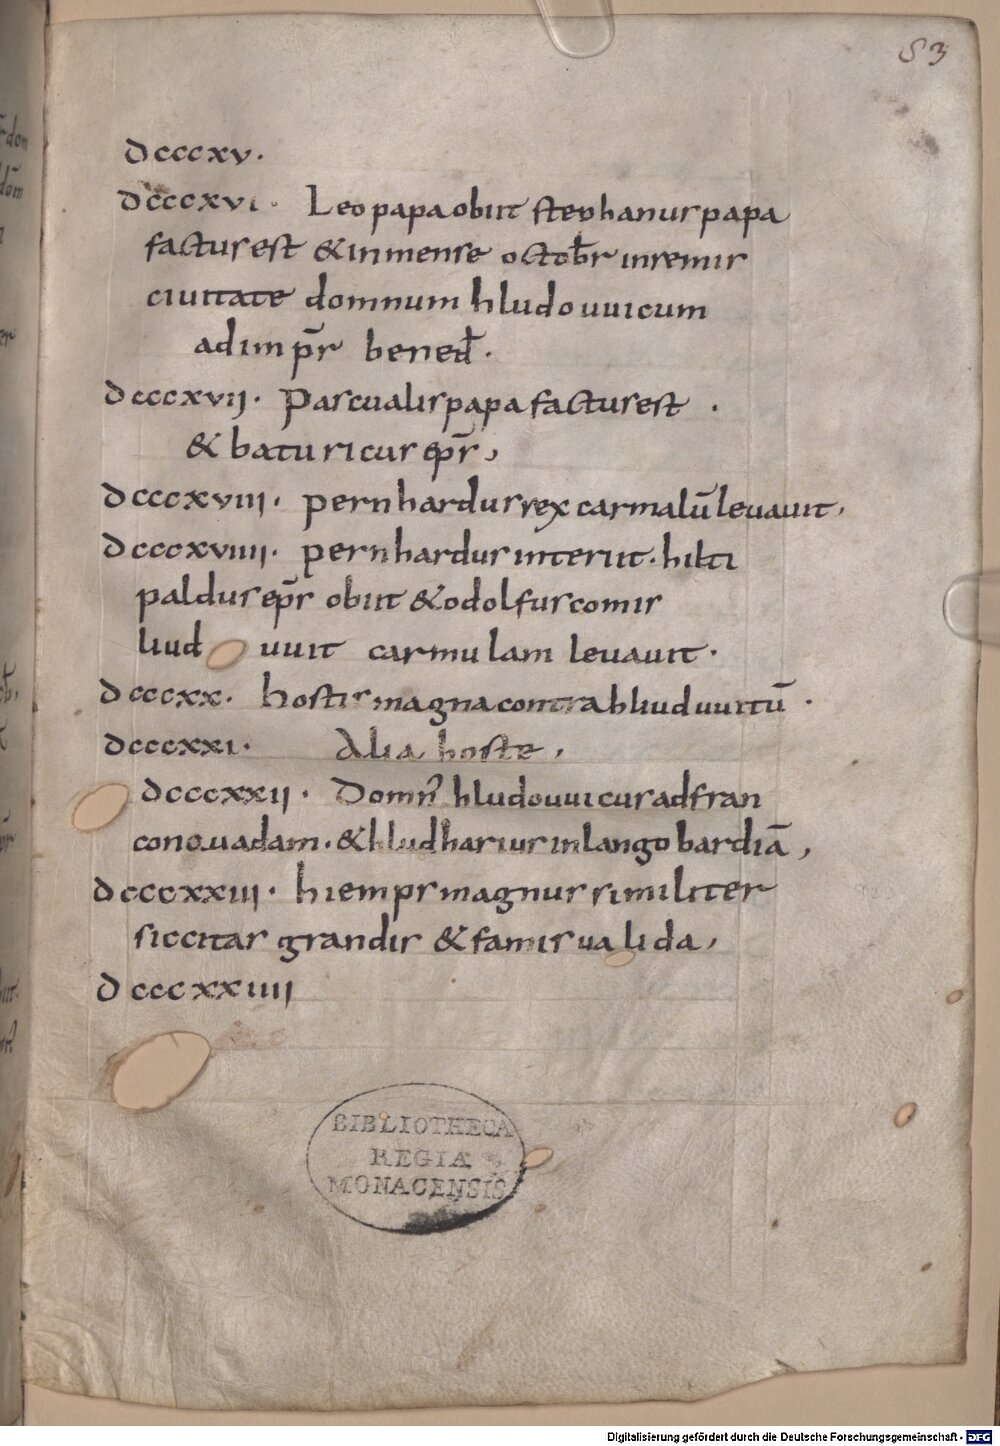 83
dcccxv.
dcccxvi. Leo papa obiit stephanus papa
factus est & in mense octob̄r in remis
ciuitate domnum hludouuicum
ad imp̄r bened̄.
dcccxvii. Pascualis papa factus est .
& baturicus ep̄s,
dcccxviii. pernhardus rex carmalū leuauit,
dcccxviiii. pernhardus interiit. hilti
paldus ep̄s obiit & odolfus comis
liud uuit carmulam leuauit.
dcccxx. hostis magna contra hliuduuitū .
dcccxxi. Alia hoste,
dcccxxii. Domn̄ hludouuicus ad fran
cono uadam. & hludharius in langobardiā,
dcccxxiii. hiemps magnus similiter
siccitas grandis & famis ualida,
dcccxxiiii
BIBLIOTHECA
REGIA
MONACENSIS
Digitalisierung gefördert durch die Deutsche Forschungsgemeinschaft - DFG